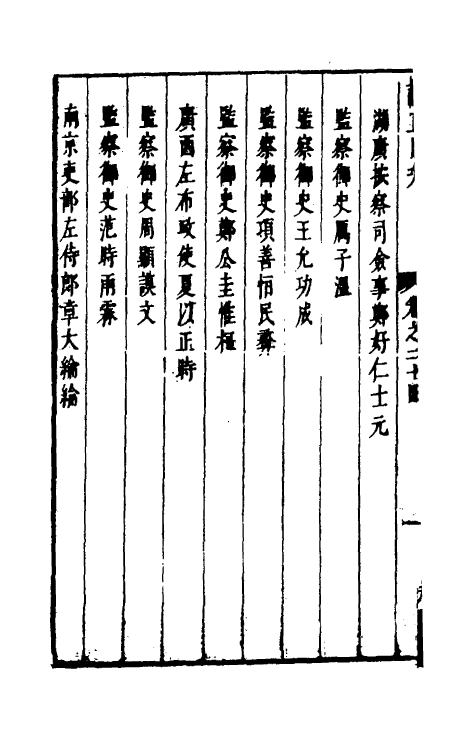 卷之二十四
湖廣按察司僉事鄭好仁士元
監察御史厲子溫
監察御史王允功成
監察御史項善恒民彝
監察御史鄭公圭惟桓
廣西左布政使夏以正時
監察御史周顯謨文
監察御史范時雨霖
南京吏部左侍郎章大綸綸